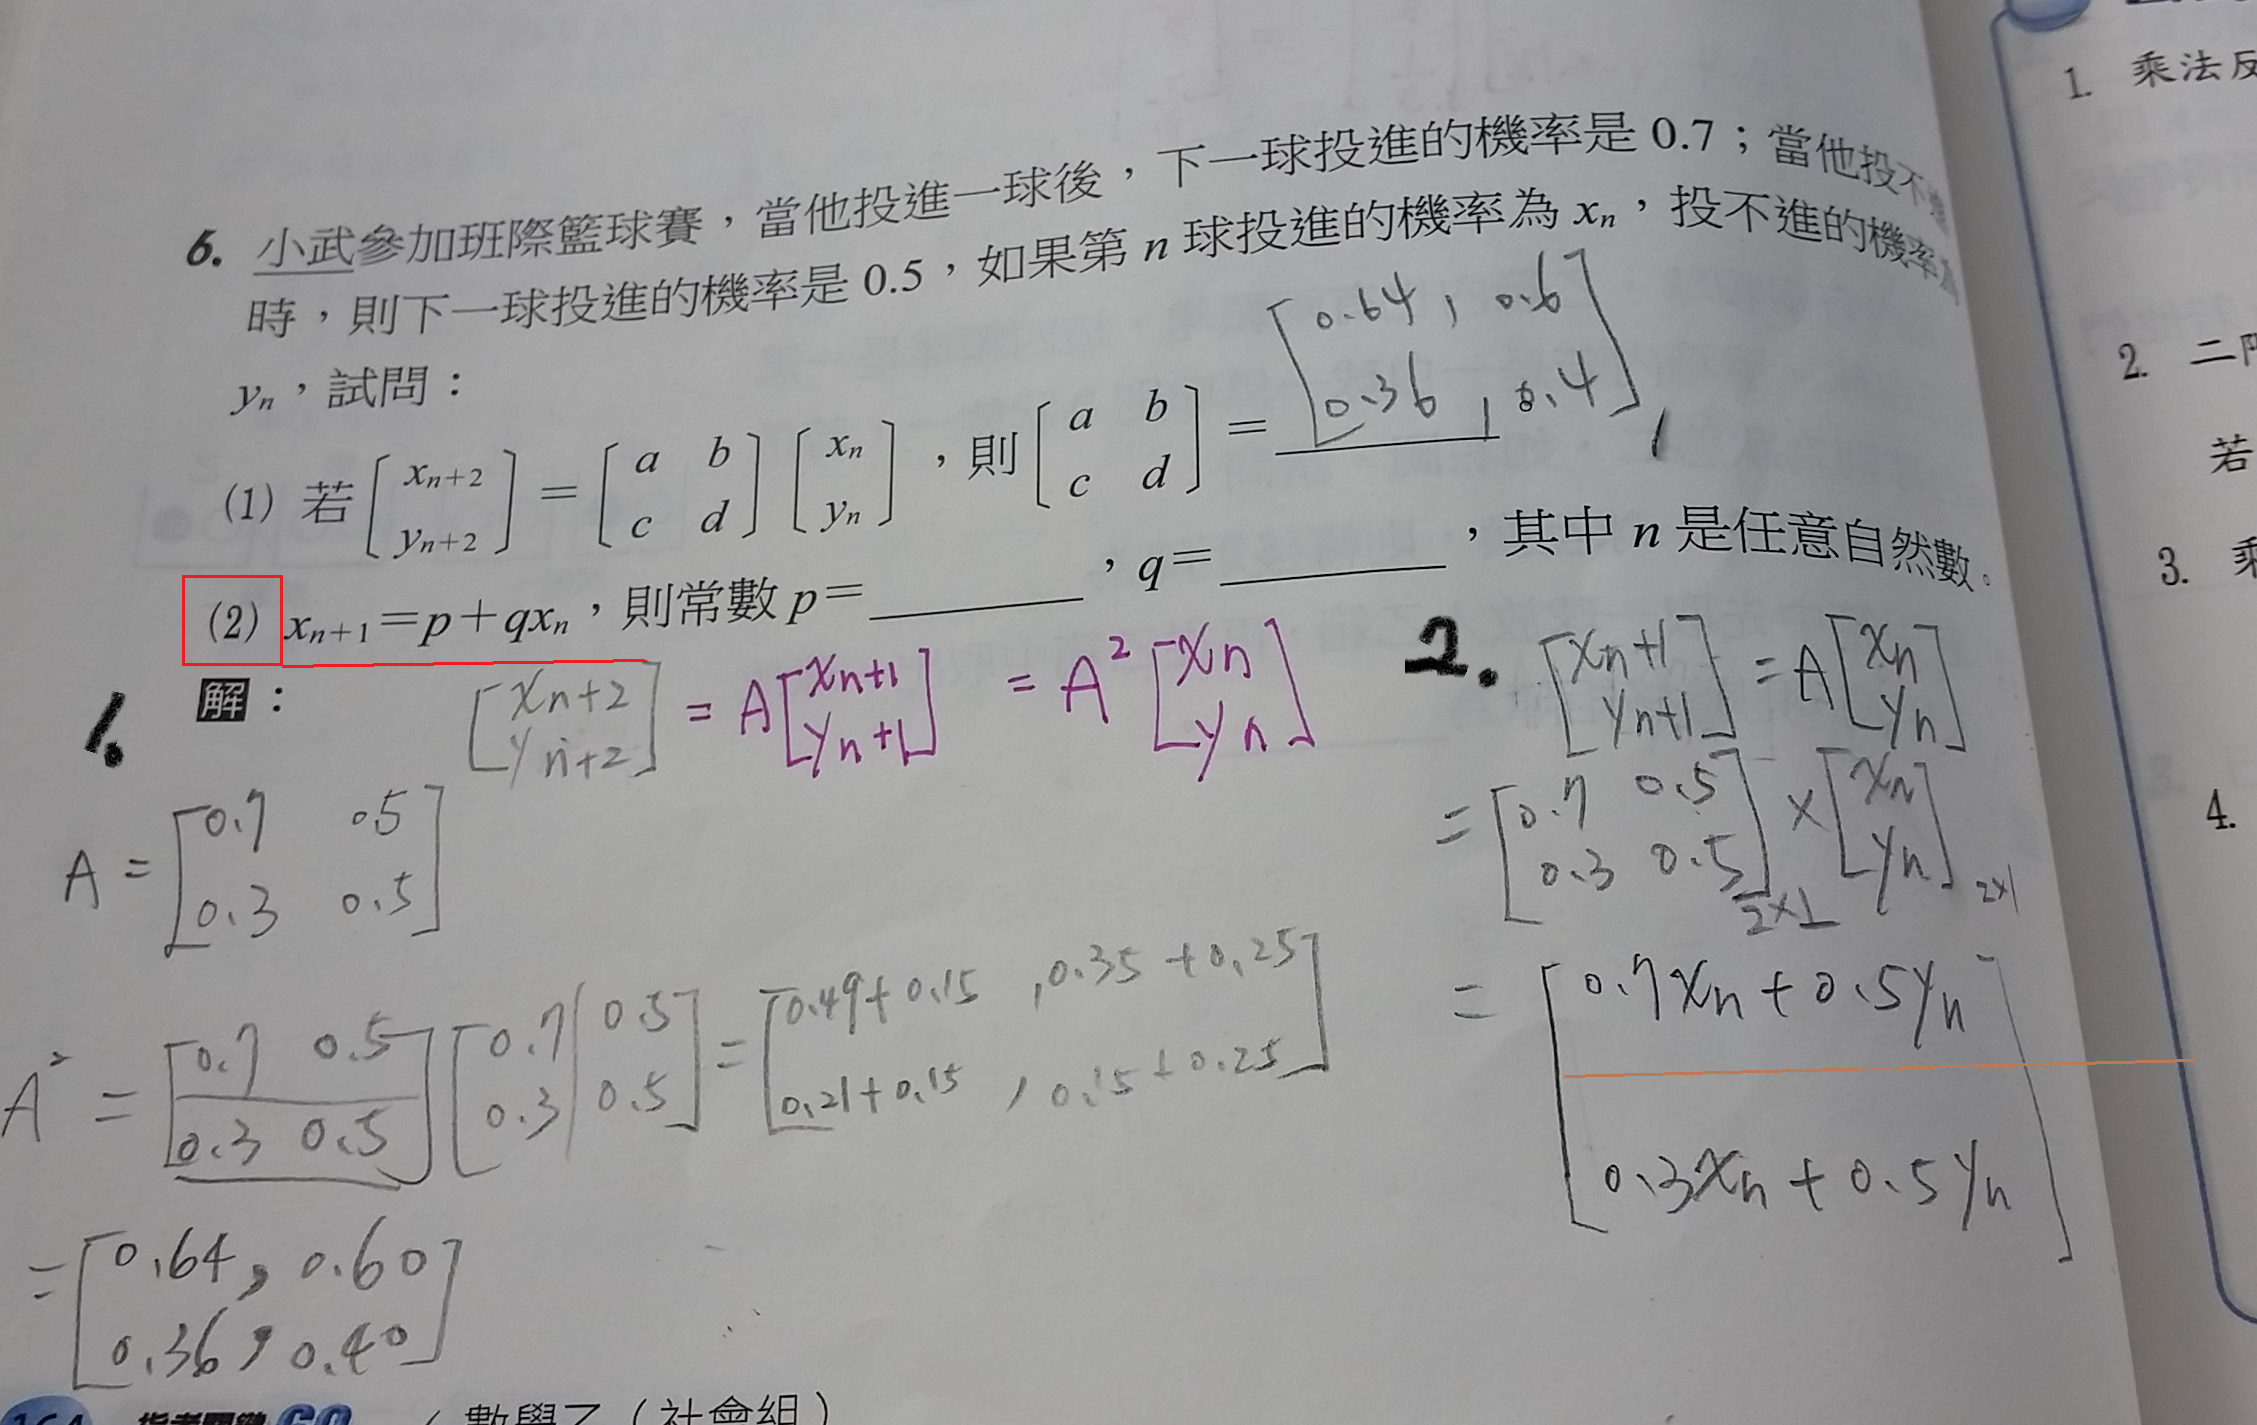 6. 小武參加班際籃球賽，當他投進一球後，下一球投進的機率是 0.7；當他投不進
時，則下一球投進的機率是 0.5，如果第 n 球投進的機率為 xₙ，投不進的機率為
yₙ，試問：
(1) 若 [xₙ₊₂ yₙ₊₂] = [a b c d] [xₙ yₙ]，則 [a b c d] = [0.64, 0.6 0.36, 0.4]，
(2) xₙ₊₁＝p＋qxₙ，則常數 p＝＿＿＿＿，q＝＿＿＿＿，其中 n 是任意自然數。
解：
1.
[xn+2 yn+2] = A [xn+1 yn+1] = A² [xn yn]
A = [0.7 0.5 0.3 0.5]
A² = [0.7 0.5 0.3 0.5] [0.7 0.5 0.3 0.5] = [0.49+0.15, 0.35+0.25 0.21+0.15, 0.15+0.25]
= [0.64, 0.60 0.36, 0.40]
2. [xn+1 yn+1] = A [xn yn]
= [0.7 0.5 0.3 0.5] 2×1 × [xn yn] 2×1
= [0.7xn + 0.5yn 0.3xn + 0.5yn]
164 指考關鍵 60
數學乙（社會組）
1. 乘法反
2. 二階
若
3. 乘
4.